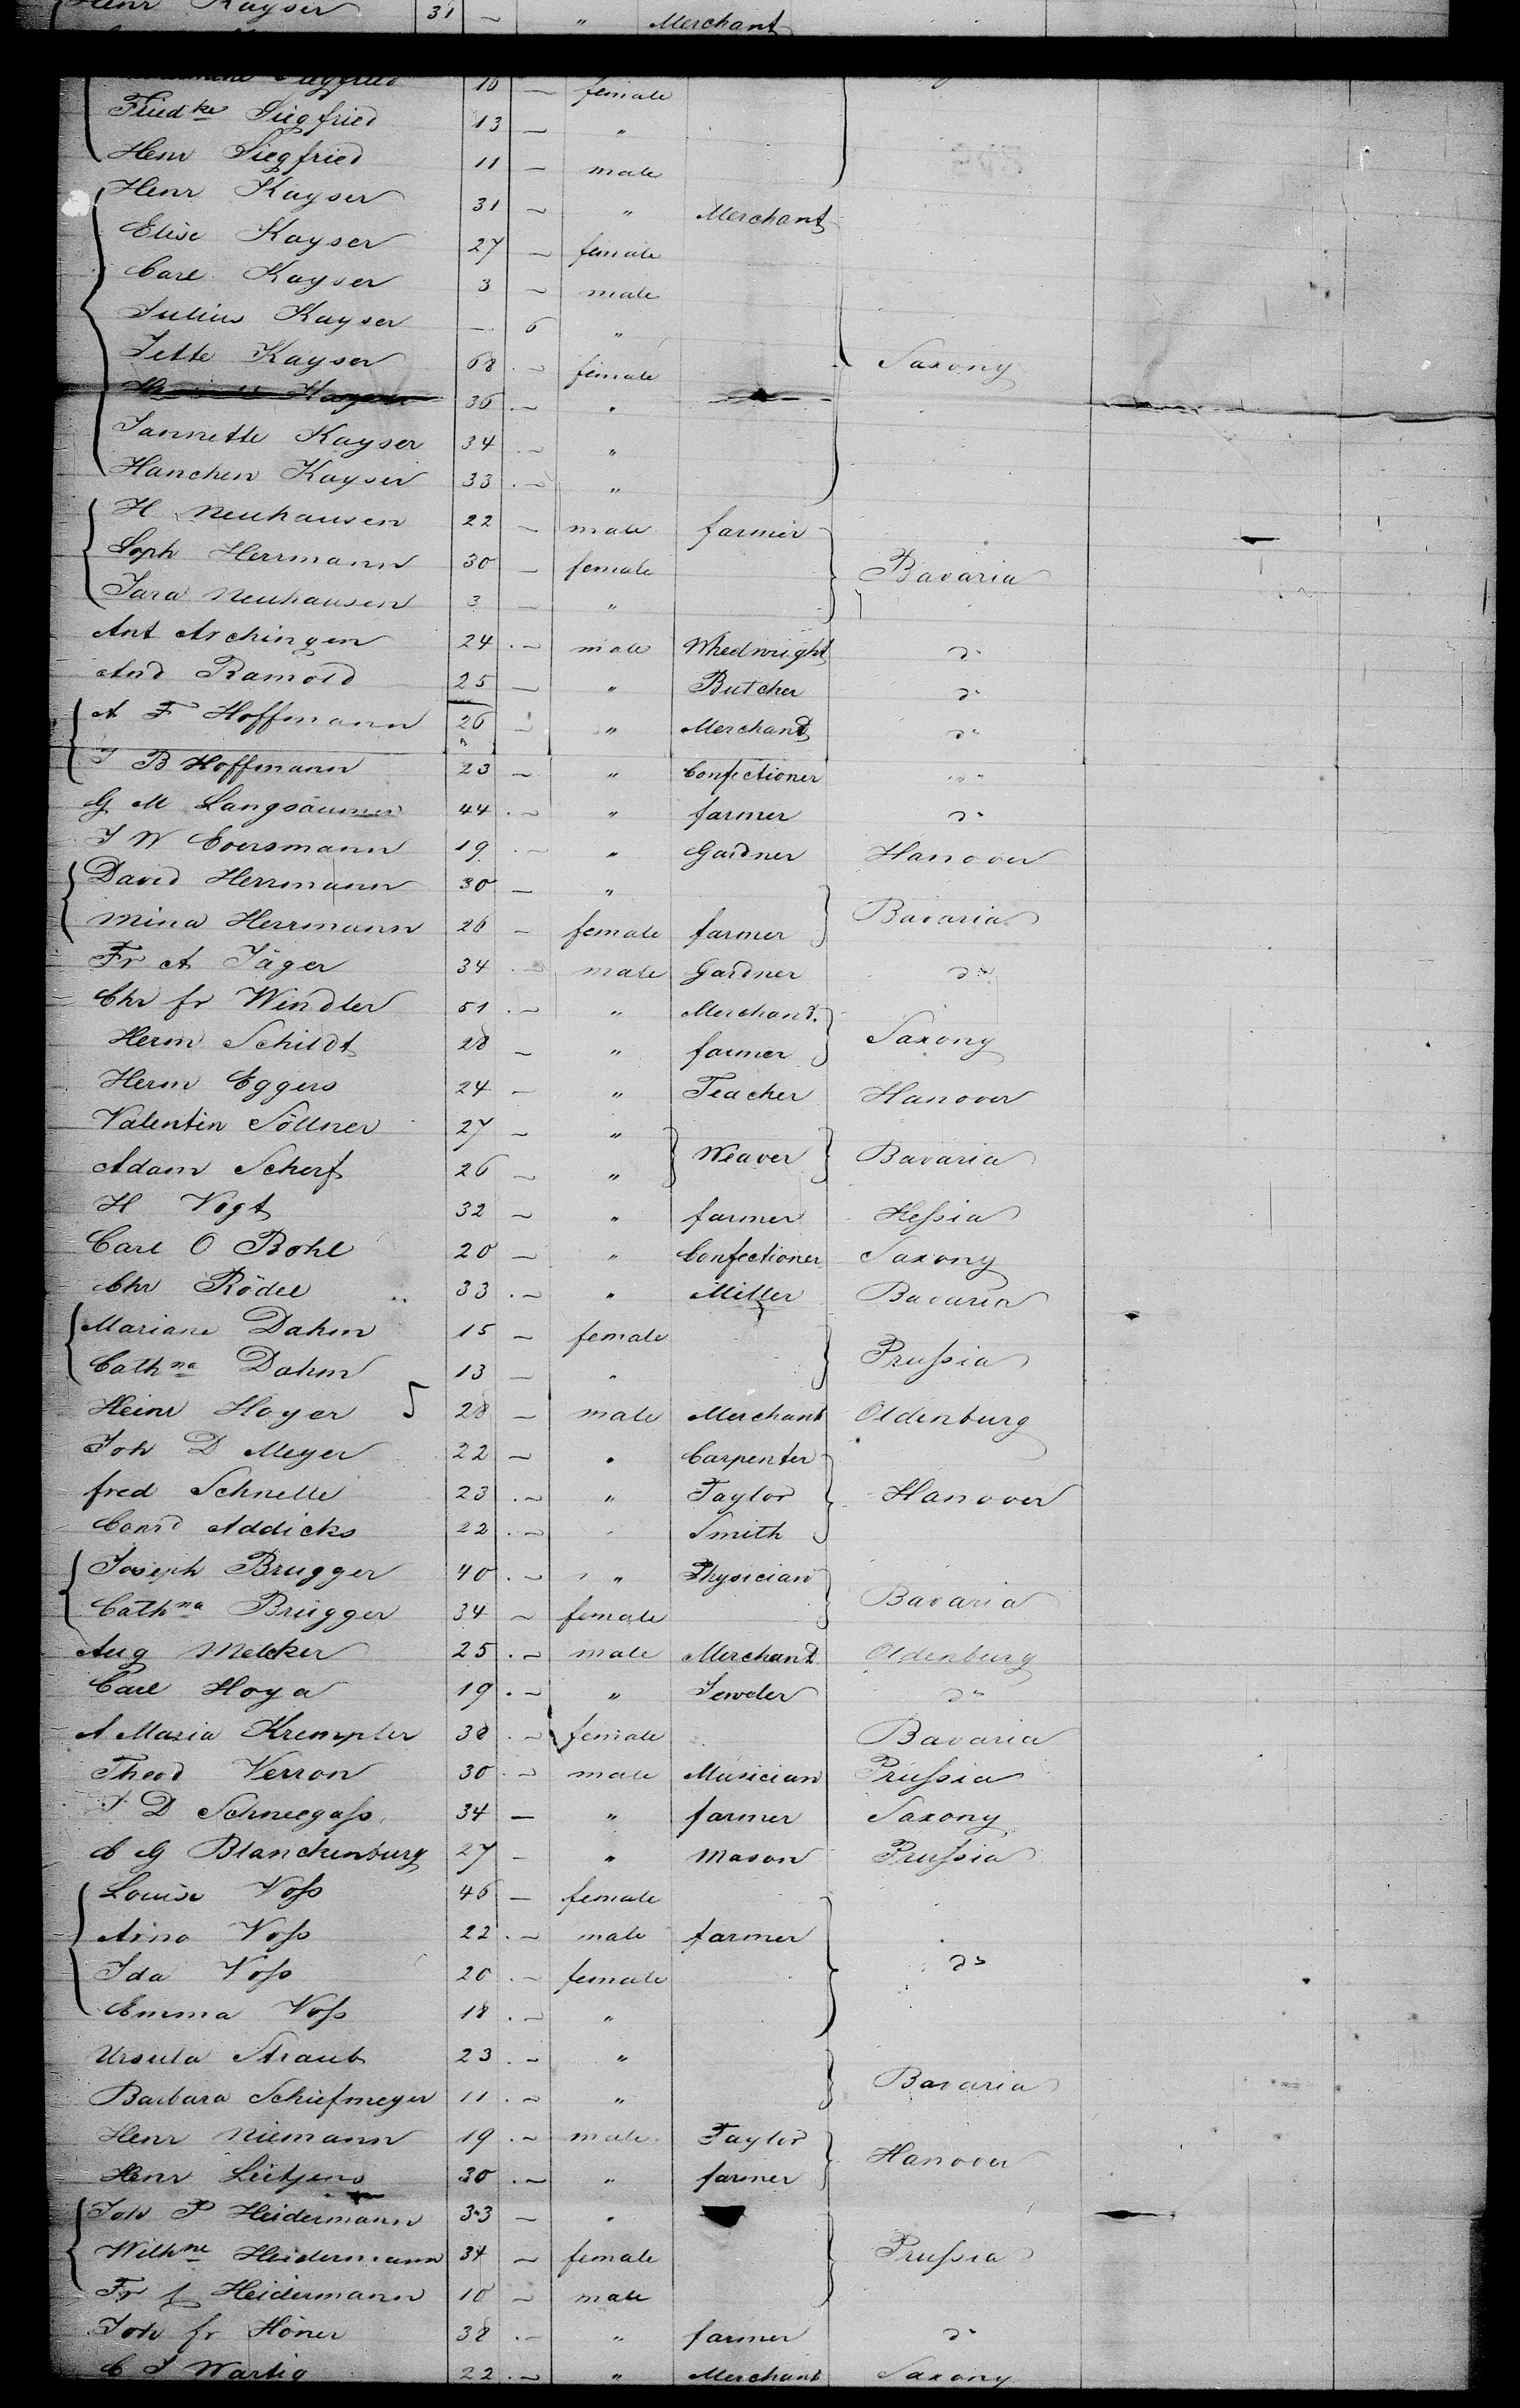 Henr Kayser 31 ~ " Merchant
Siegfried 16 — female
Friedke Siegfried 13 — "
Henr Siegfried 11 — male
Henr Kayser 31 ~ " Merchant
Elise Kayser 27 ~ female
Carl Kayser 3 ~ male
Julius Kayser — 6 "
Jette Kayser 68 ~ female Saxony
Kayser 36 ~ "
Jannette Kayser 34 ~ "
Hanchen Kayser 33 ~ "
H Neuhausen 22 — male farmer
Soph Herrmann 30 — female Bavaria
Sara Neuhausen 3 — "
Ant Archingen 24 ~ male Wheelwright do
And Ramold 25 — " Butcher do
A F Hoffmann 26 — " Merchand do
J B Hoffmann 23 — " Confectioner " "
G M Langsäumer 44 ~ " farmer do
J W Eversmann 19 ~ " Gardner Hanover
David Herrmann 30 — "
Mina Herrmann 26 — female farmer Bavaria
Fr A Jäger 34 ~ male Gardner do
Chr fr Windler 51 ~ " Merchand.
Herm Schildt 28 — " farmer Saxony
Herm Eggers 24 — " Teacher Hanover
Valentin Söllner 27 — "
Weaver Bavaria
Adam Scherf 26 — "
H Vogt 32 ~ " farmer Hessia
Carl O Bohl 20 — " Confectioner Saxony
Chr Rödel 33 ~ " Miller Bavaria
Mariane Dahm 15 — female
Cathna Dahm 13 — " Prussia
Heinr Hoyer 28 — male Merchant Oldenburg
Joh D Meyer 22 — " Carpenter
fred Schnelle 23 ~ " Taylor Hanover
Conrd Addicks 22 ~ " Smith
Joseph Brugger 40 ~ " Physician
Cathna Brugger 34 ~ female Bavaria
Aug Melcker 25 ~ male Merchand Oldenburg
Carl Hoya 19 ~ " Jeweler do
A Maria Krempler 38 ~ female Bavaria
Theod Verron 30 ~ male Musician Prussia
J D Schneegass 34 — " farmer Saxony
C G Blanckenburg 27 — " Mason Prussia
Louise Voss 46 — female
Arno Voss 22 ~ male farmer
Ida Voss 20 ~ female do
Emma Voss 18 ~ "
Ursula Straub 23 ~ "
Barbara Schiefmeyer 11 ~ " Bavaria
Henr Niemann 19 ~ male Taylor
Henr Leitjens 30 ~ " farmer Hanover
Joh P Heidermann 33 — "
Wilhne Heidermann 34 ~ female Prussia
Fr J Heidermann 10 ~ male
Joh fr Höner 38 ~ " farmer do
C J Wartig 22 ~ " Merchant Saxony